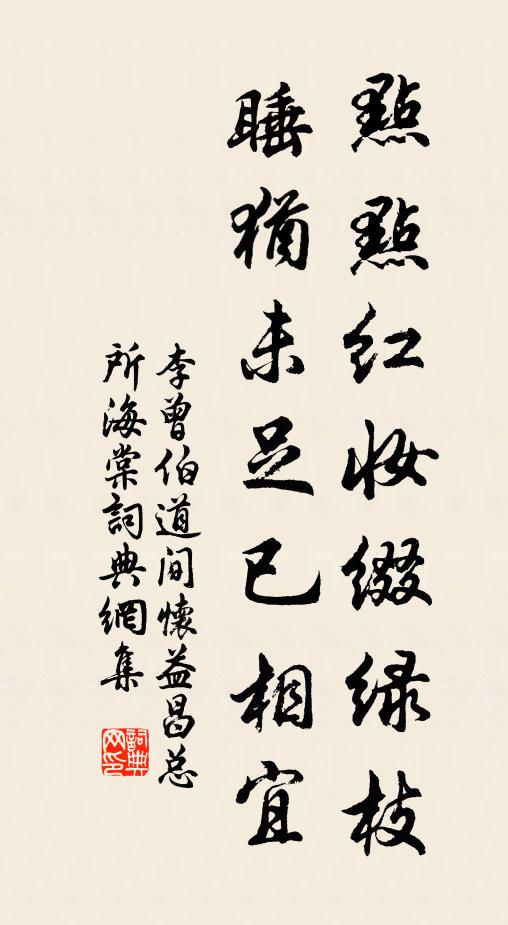 點點紅妝綴綠枝
睡猶未足已相宜
李曾伯道間懷益昌总
所海棠詞典網集
詞典
网印